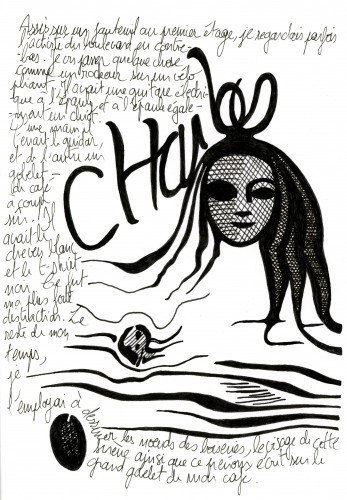 Assis sur un fauteuil au premier étage, je regardais parfois
l'activité du boulevard en contre-
bas. Je vis passer quelque chose
comme un rockeur sur un vélo
pliant. Il avait une guitare électri-
que à l'épaule et à l'épaule égale-
ment un chiot.
D'une main il
tenait le guidon,
et de l'autre un
gobelet
de café
à coup
sûr. Il
avait les
cheveux blancs
et le t-shirt
noir. Ce fut
ma plus forte
distraction. Le
reste de mon
temps,
je
l'employai à dessiner les nœuds des boiseries, le visage de cette
sirène ainsi que ce prénom écrit sur le
grand gobelet de mon café.
Charles